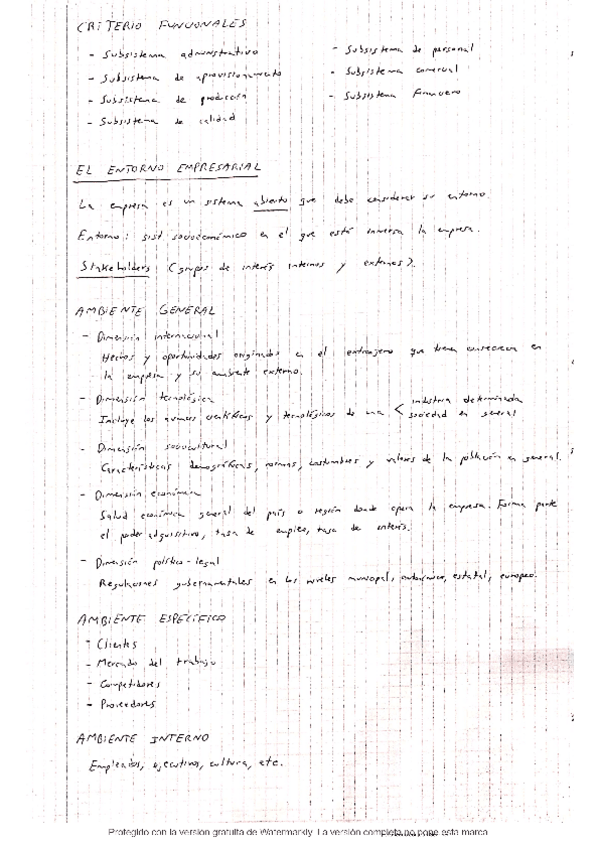 CRITERIO FUNCIONALES
- Subsistema administrativo
- Subsistema de aprovisionamiento
- Subsistema de producción
- Subsistema de calidad
- Subsistema de personal
- Subsistema comercial
- Subsistema financiero
EL ENTORNO EMPRESARIAL
La empresa es un sistema abierto que debe considerar su entorno.
Entorno: sist socioeconómico en el que está inmersa la empresa.
Stakeholders (grupos de interés internos y externos).
AMBIENTE GENERAL
- Dimensión internacional
Hechos y oportunidades originados en el extranjero que tienen consecuencia en
la empresa y su ambiente externo.
- Dimensión tecnológica
Incluye los avances científicos y tecnológicos de una < industria determinada
sociedad en general
- Dimensión sociocultural
Características demográficas, normas, costumbres y valores de la población en general.
- Dimensión económica
Salud económica general del país o región donde opera la empresa. Forma parte
el poder adquisitivo, tasa de empleo, tasa de interés.
- Dimensión político-legal
Regulaciones gubernamentales en los niveles municipal, autonómico, estatal, europeo.
AMBIENTE ESPECÍFICO
- Clientes
- Mercado del trabajo
- Competidores
- Proveedores
AMBIENTE INTERNO
Empleados, ejecutivos, cultura, etc.
Protegido con la versión gratuita de Watermarkly. La versión completa no pone esta marca